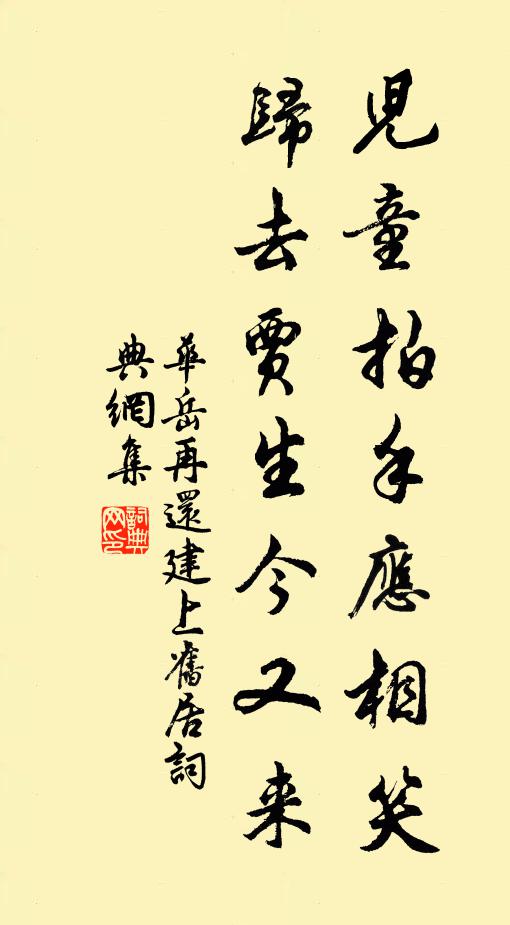 兒童拍手應相笑
歸去賈生今又来
華岳再還建上舊居詞
典網集
詞典
网印